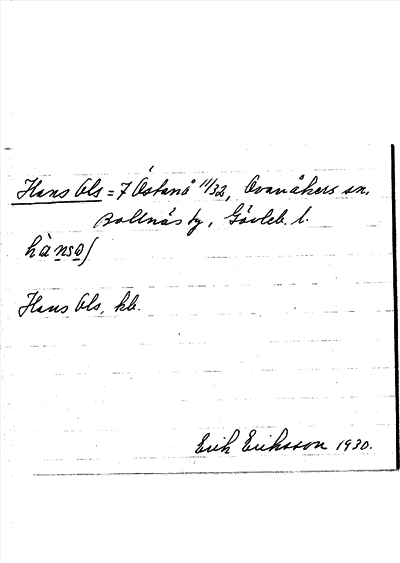 Hans Ols = 7 Östanå 11/32, Ovanåkers sn,
Bollnäs tg, Gävleb. l.
hànsoʃ
Hans Ols, kb.
Erik Eriksson 1930.